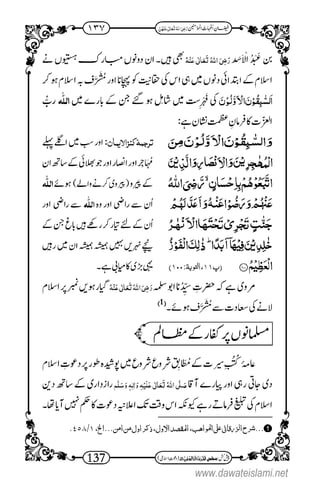 ۱۳۷ فیضانِ اُمّہاتُ المؤمنین
بن عَبْدُ الْاَسَد رَضِیَ اللہُ تَعَالٰی عَنْہُ بھی ہیں۔ ان دونوں مبارک ہستیوں نے
اسلام کے ابتدائی دنوں میں ہی اس کی حقانیت کو پہچانا اور مُشَرَّف بہ اسلام ہو کر
اَلسّٰبِقُوْنَ الْاَوَّلُوْنَ کی فہرست میں شامل ہو گئے جن کے بارے میں اللہ ربّ
العزت کا فرمانِ عظمت نشان ہے:
وَالسّٰبِقُوْنَ الْاَوَّلُوْنَ مِنَ ترجمۂ کنزالایمان: اور سب میں اگلے پہلے
الْمُهٰجِرِیْنَ وَالْاَنْصَارِ وَالَّذِیْنَ مُہاجر اور انصار اور جو بھلائی کے ساتھ ان
اتَّبَعُوْهُمْ بِاِحْسَانٍ ۙ رَّضِیَ اللّٰهُ کے پیرو (پیروی کرنے والے) ہوئے اللہ
عَنْهُمْ وَرَضُوْا عَنْهُ وَاَعَدَّ لَهُمْ ان سے راضی اور وہ اللہ سے راضی اور
جَنّٰتٍ تَجْرِیْ تَحْتَهَا الْاَنْهٰرُ ان کے لئے تیار کر رکھے ہیں باغ جن کے
خٰلِدِیْنَ فِیْهَاۤ اَبَدًا ؕ ذٰلِكَ الْفَوْزُ نیچے نہریں بہیں ہمیشہ ہمیشہ ان میں رہیں
الْعَظِیْمُ (پ۱۱، التوبة: ۱۰۰) یہی بڑی کامیابی ہے۔
مروی ہے کہ حضرتِ سیِّدُنا ابوسلمہ رَضِیَ اللہُ تَعَالٰی عَنْہُ گیارہویں نمبر پر اسلام
لانے کی سعادت سے مُشَرَّف ہوئے۔ (1)
مسلمانوں پر کفار کے مظالم
عامۂ کُتُبِ سیرت کے مطابق شروع شروع میں پوشیدہ طور پر دعوتِ اسلام
کا کام کیا جاتا رہا اور پیارے آقا صَلَّی اللہُ تَعَالٰی عَلَیْہِ وَاٰلِہٖ وَسَلَّم رازداری کے ساتھ دینِ
اسلام کی تبلیغ فرماتے رہے کیونکہ اس وقت تک اعلانیہ دعوت کا حکم نہیں آیا تھا۔
1 ... شرح الزرقانی علی المواھب، المقصد الاول، ذکر اول من اٰمن...الخ، ۱/۴۵۸.
137
www.dawateislami.net